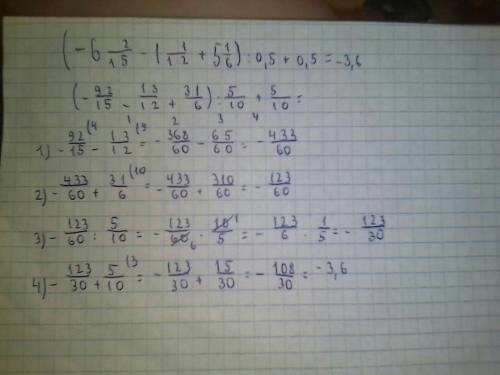 (-6 2/15 - 1 1/12 + 5 1/6) : 0,5 + 0,5 = -3,6
(-92/15 - 13/12 + 31/6) : 5/10 + 5/10 =
1 2 3 4
1) -92/15 (4 - 13/12 (5 = -368/60 - 65/60 = -433/60
2) -433/60 + 31/6 (10 = -433/60 + 310/60 = -123/60
3) -123/60 : 5/10 = -123/60 6 · 10/5 1 = -123/6 · 1/5 = -123/30
4) -123/30 + 5/10 (3 = -123/30 + 15/30 = -108/30 = -3,6